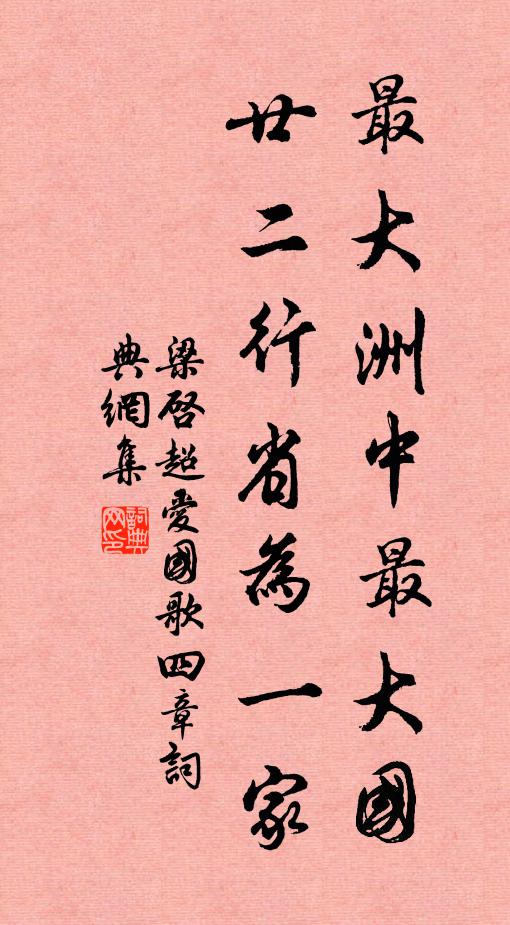 最大洲中最大國
廿二行省為一家
梁啓超愛國歌四章詞
典網集
詞典網印